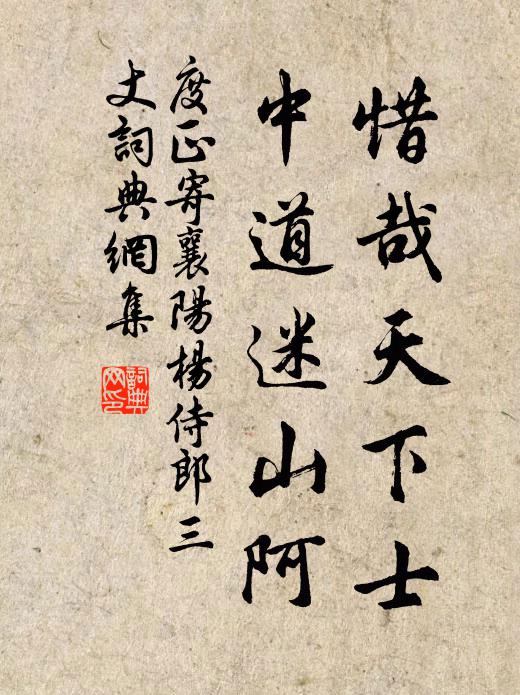 惜哉天下士
中道迷山阿
度正寄襄陽楊侍郎三
丈詞典網集
詞典網印